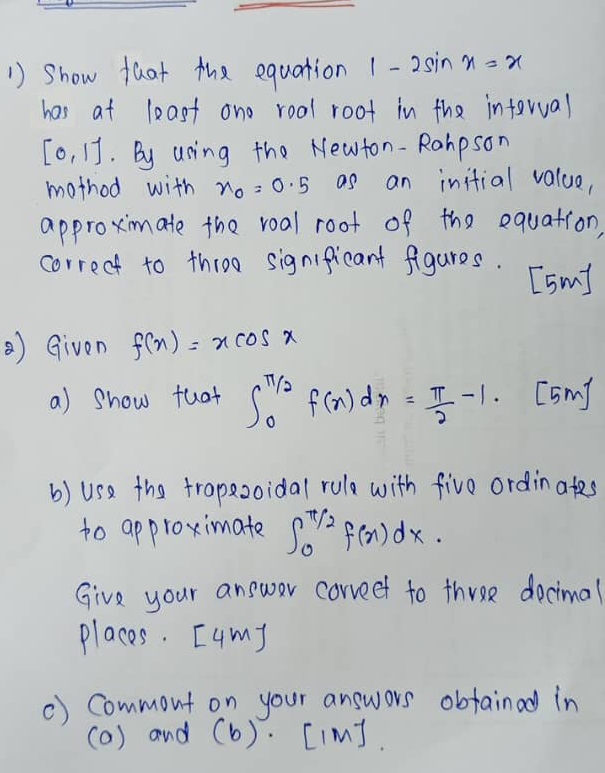 1) Show that the equation 1 - 2sin x = x
has at least one real root in the interval
[0,1]. By using the Newton-Rahpson
method with x₀ = 0.5 as an initial value,
approximate the real root of the equation,
correct to three significant figures.
[5m]
2) Given f(x) = x cos x
a) Show that ∫₀^(π/2) f(x) dx = π/2 - 1. [5m]
b) Use the trapezoidal rule with five ordinates
to approximate ∫₀^(π/2) f(x) dx.
Give your answer correct to three decimal
places. [4m]
c) Comment on your answers obtained in
(a) and (b). [1M].